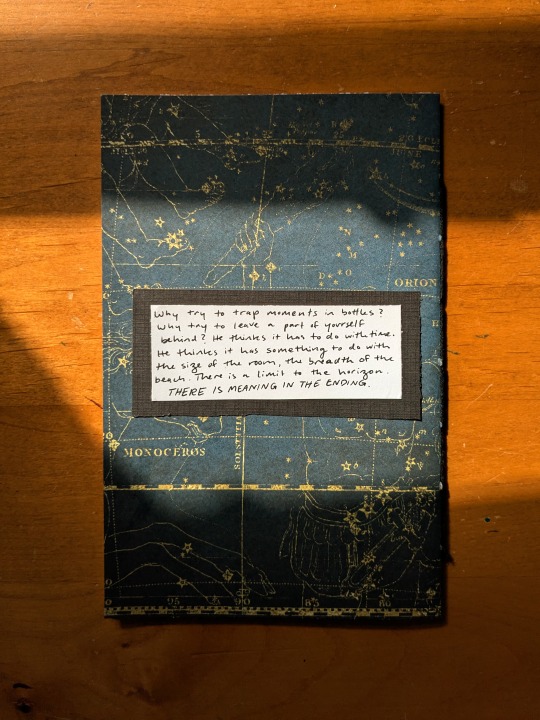 ORION
Why try to trap moments in bottles?
Why try to leave a part of yourself
behind? He thinks it has to do with time.
He thinks it has something to do with
the size of the room, the breadth of the
beach. There is a limit to the horizon.
THERE IS MEANING IN THE ENDING.
MONOCEROS
95
90
85
80